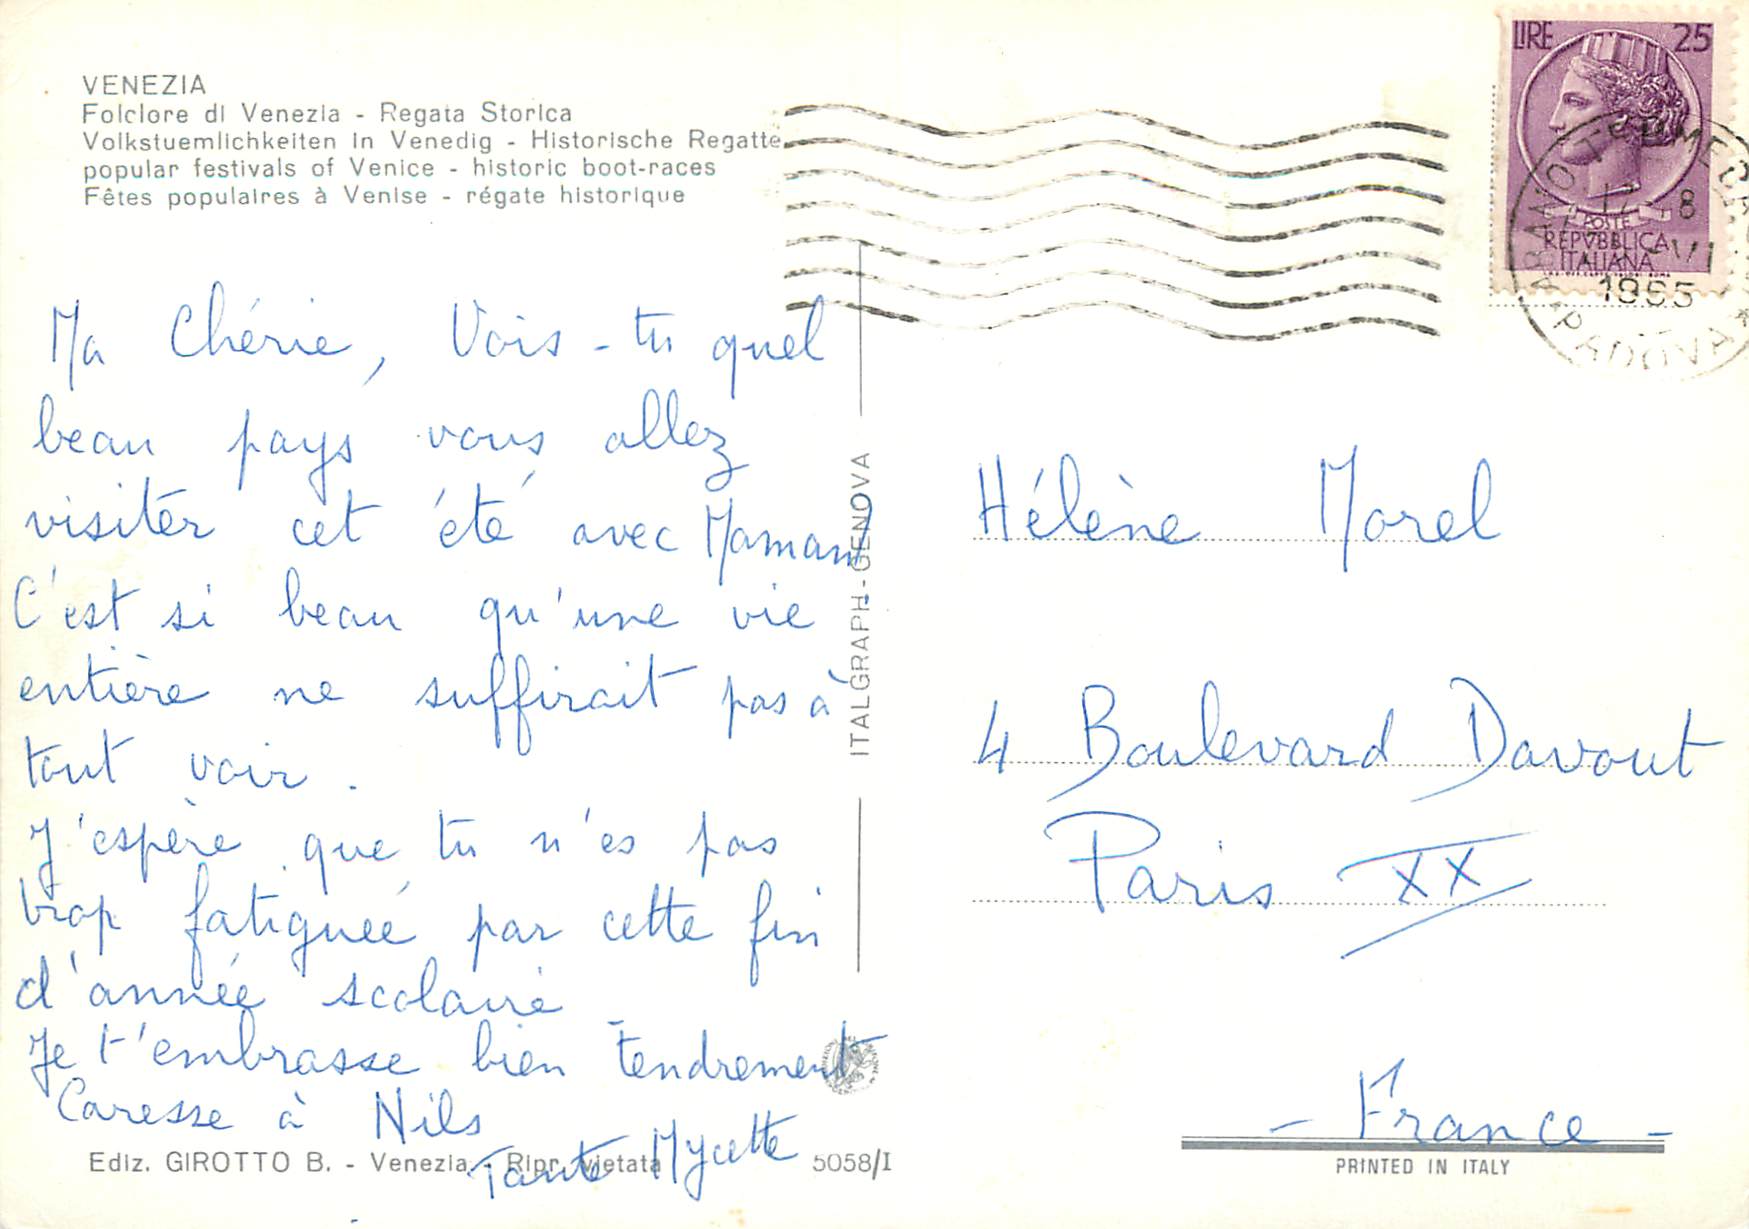 VENEZIA
Folclore di Venezia - Regata Storica
Volkstuemlichkeiten in Venedig - Historische Regatte
popular festivals of Venice - historic boot-races
Fêtes populaires à Venise - régate historique
LIRE 25
POSTE
REPVBBLICA
ITALIANA
ABANO TERME
17 - 8
VI
1965
PADOVA
Ma Chérie, Vois-tu quel
beau pays vous allez
visiter cet été avec Maman!
C'est si beau qu'une vie
entière ne suffirait pas à
tout voir.
J'espère que tu n'es pas
trop fatiguée par cette fin
d'année scolaire
Je t'embrasse bien tendrement
Caresse à Nils
Tante Mycette
ITALGRAPH-GENOVA
Hélène Morel
4 Boulevard Davout
Paris XX
- France -
Ediz. GIROTTO B. - Venezia - Ripr. vietata
5058/I
PRINTED IN ITALY